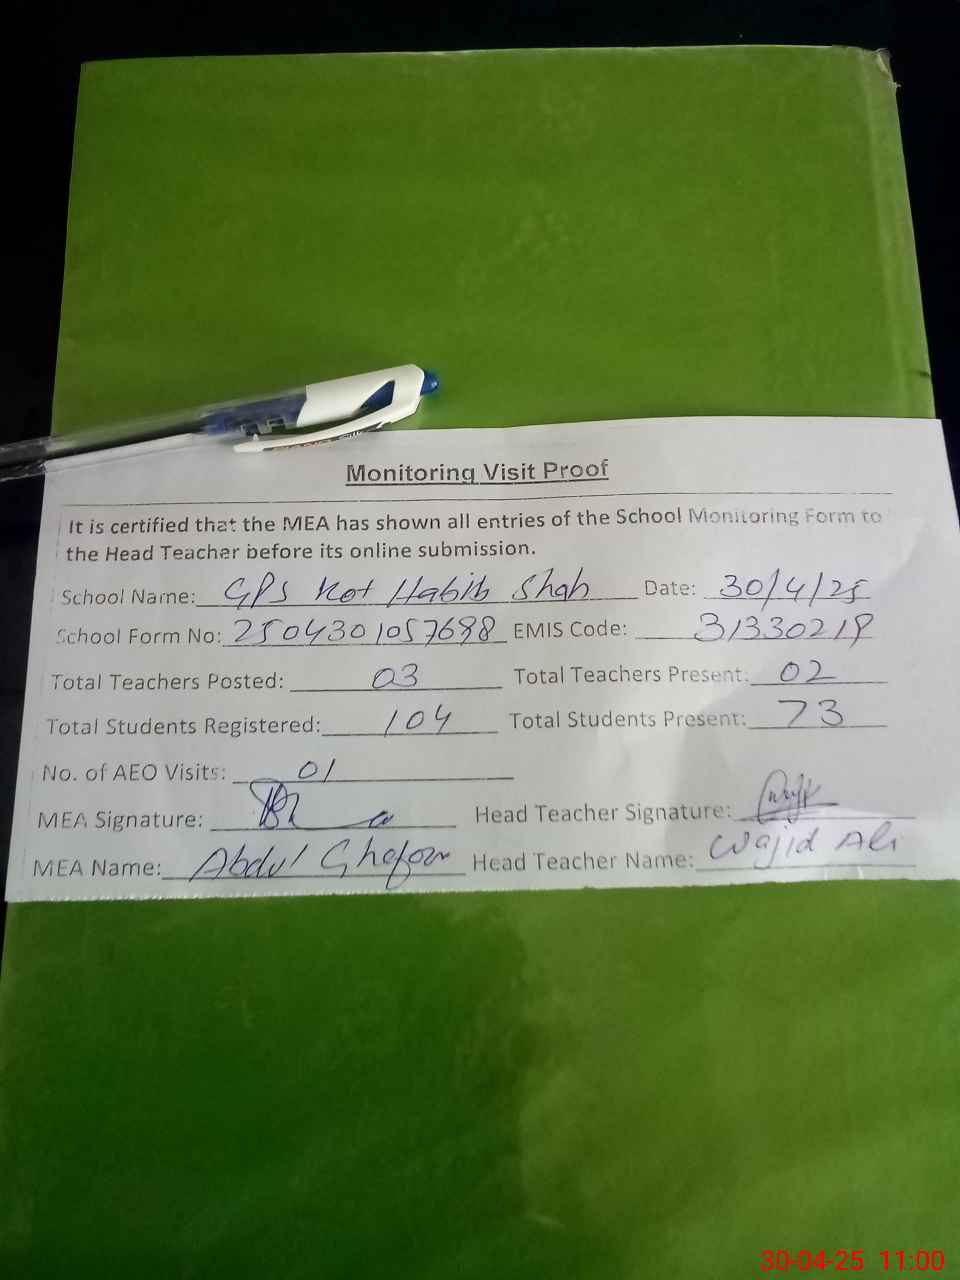 Monitoring Visit Proof
It is certified that the MEA has shown all entries of the School Monitoring Form to
the Head Teacher before its online submission.
School Name: GPS Kot Habib Shah Date: 30/4/25
School Form No: 2504301057698 EMIS Code: 31330219
Total Teachers Posted: 03 Total Teachers Present: 02
Total Students Registered: 104 Total Students Present: 73
No. of AEO Visits: 01
MEA Signature: Head Teacher Signature:
MEA Name: Abdul Ghafoor Head Teacher Name: Wajid Ali
30-04-25 11:00